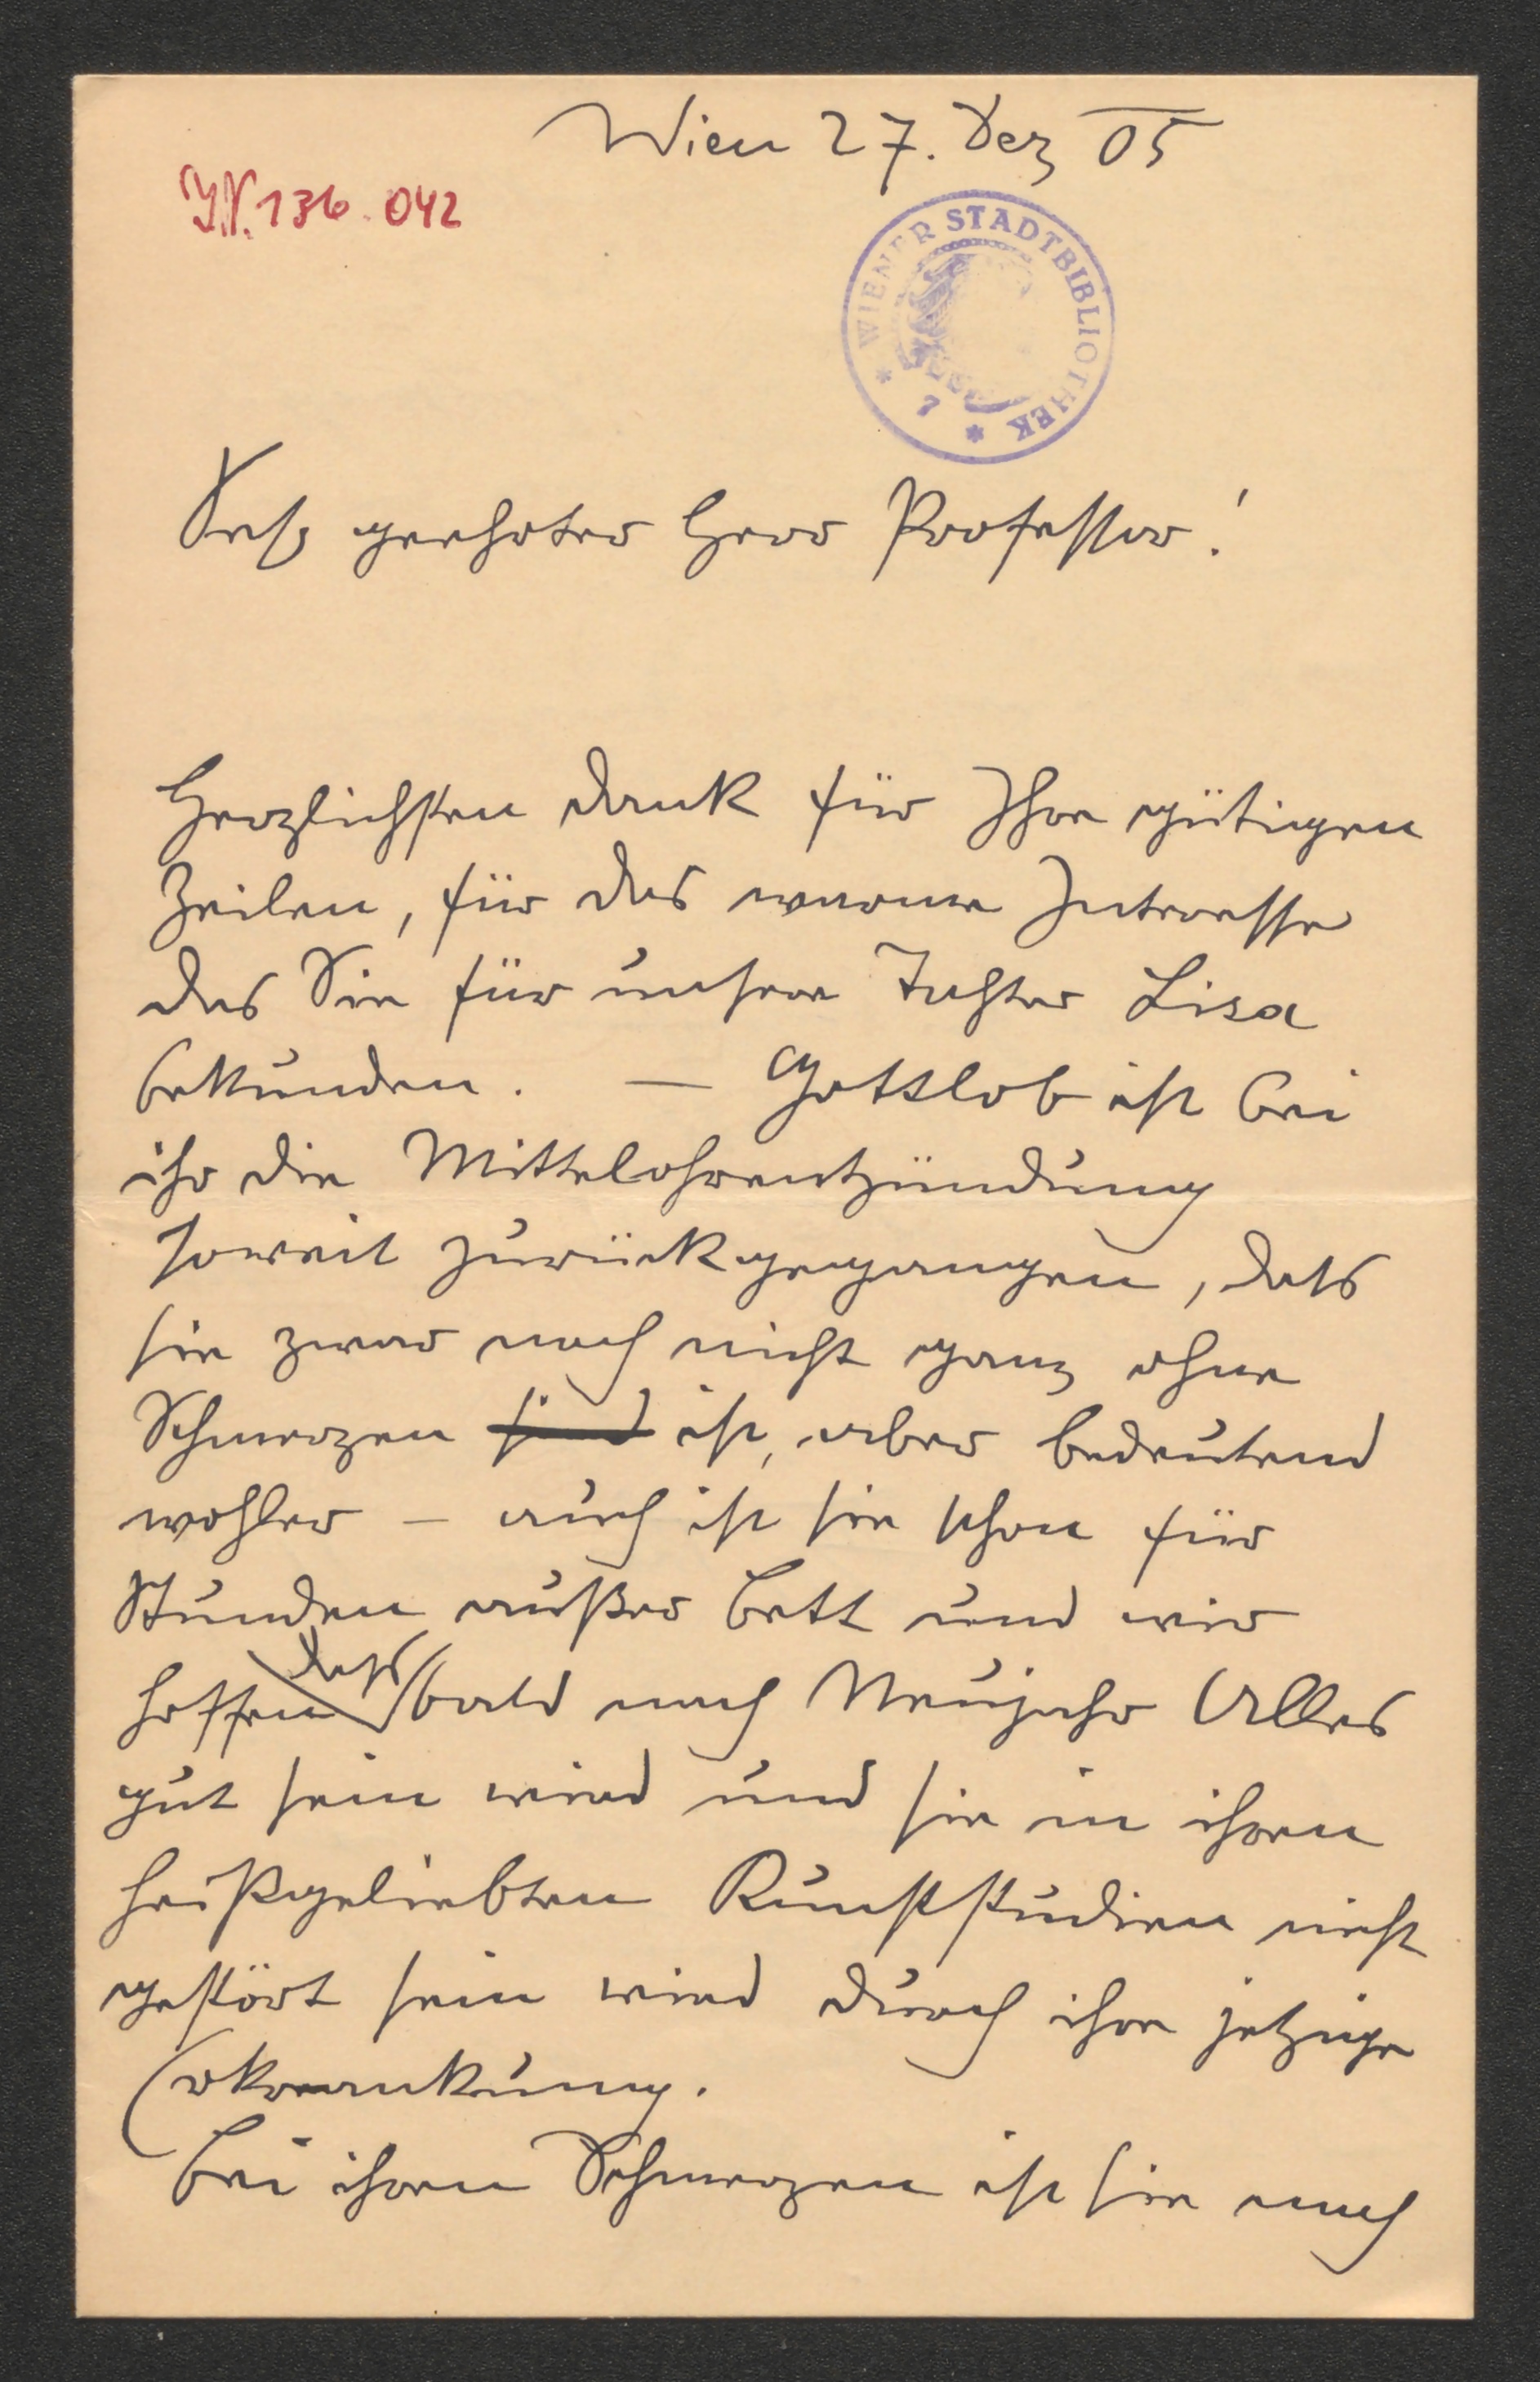 Wien 27. Dez 05
I.N. 136.042
WIENER STADTBIBLIOTHEK
Sehr geehrter Herr Professor!
Herzlichsten Dank für Ihre gütigen
Zeilen, für das warme Interesse
das Sie für unsere Tochter Lisa
bekunden. — Gottlob ist bei
ihr die Mittelohrentzündung
soweit zurückgegangen, dass
sie zwar noch nicht ganz ohne
Schmerzen sind ist, aber bedeutend
wohler – auch ist sie schon für
Stunden außer Bett und wir
dass
hoffen bald nach Neujahr Alles
gut sein wird und sie in ihren
heißgeliebten Kunststudien nicht
gestört sein wird durch ihre jetzige
Erkrankung.
Bei ihren Schmerzen ist sie noch